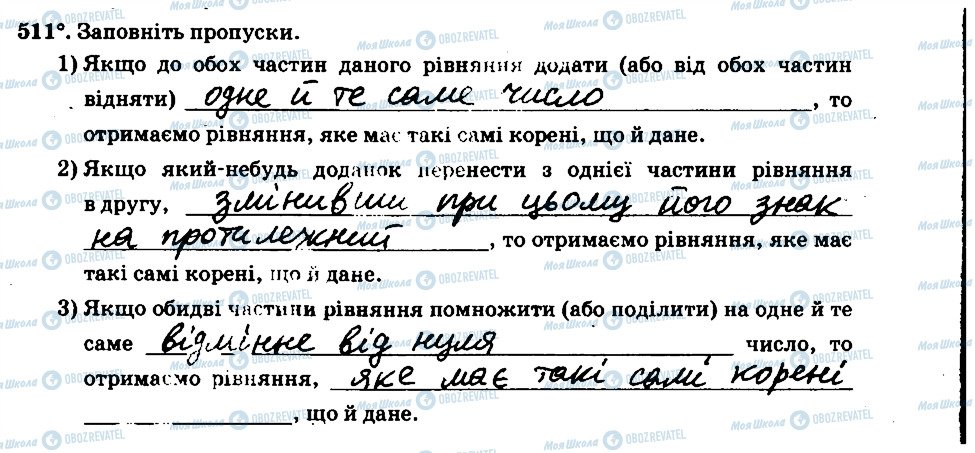 511°. Заповніть пропуски.
1) Якщо до обох частин даного рівняння додати (або від обох частин
відняти) одне й те саме число, то
отримаємо рівняння, яке має такі самі корені, що й дане.
2) Якщо який-небудь доданок перенести з однієї частини рівняння
в другу, змінивши при цьому його знак
на протилежний, то отримаємо рівняння, яке має
такі самі корені, що й дане.
3) Якщо обидві частини рівняння помножити (або поділити) на одне й те
саме відмінне від нуля число, то
отримаємо рівняння, яке має такі самі корені
, що й дане.